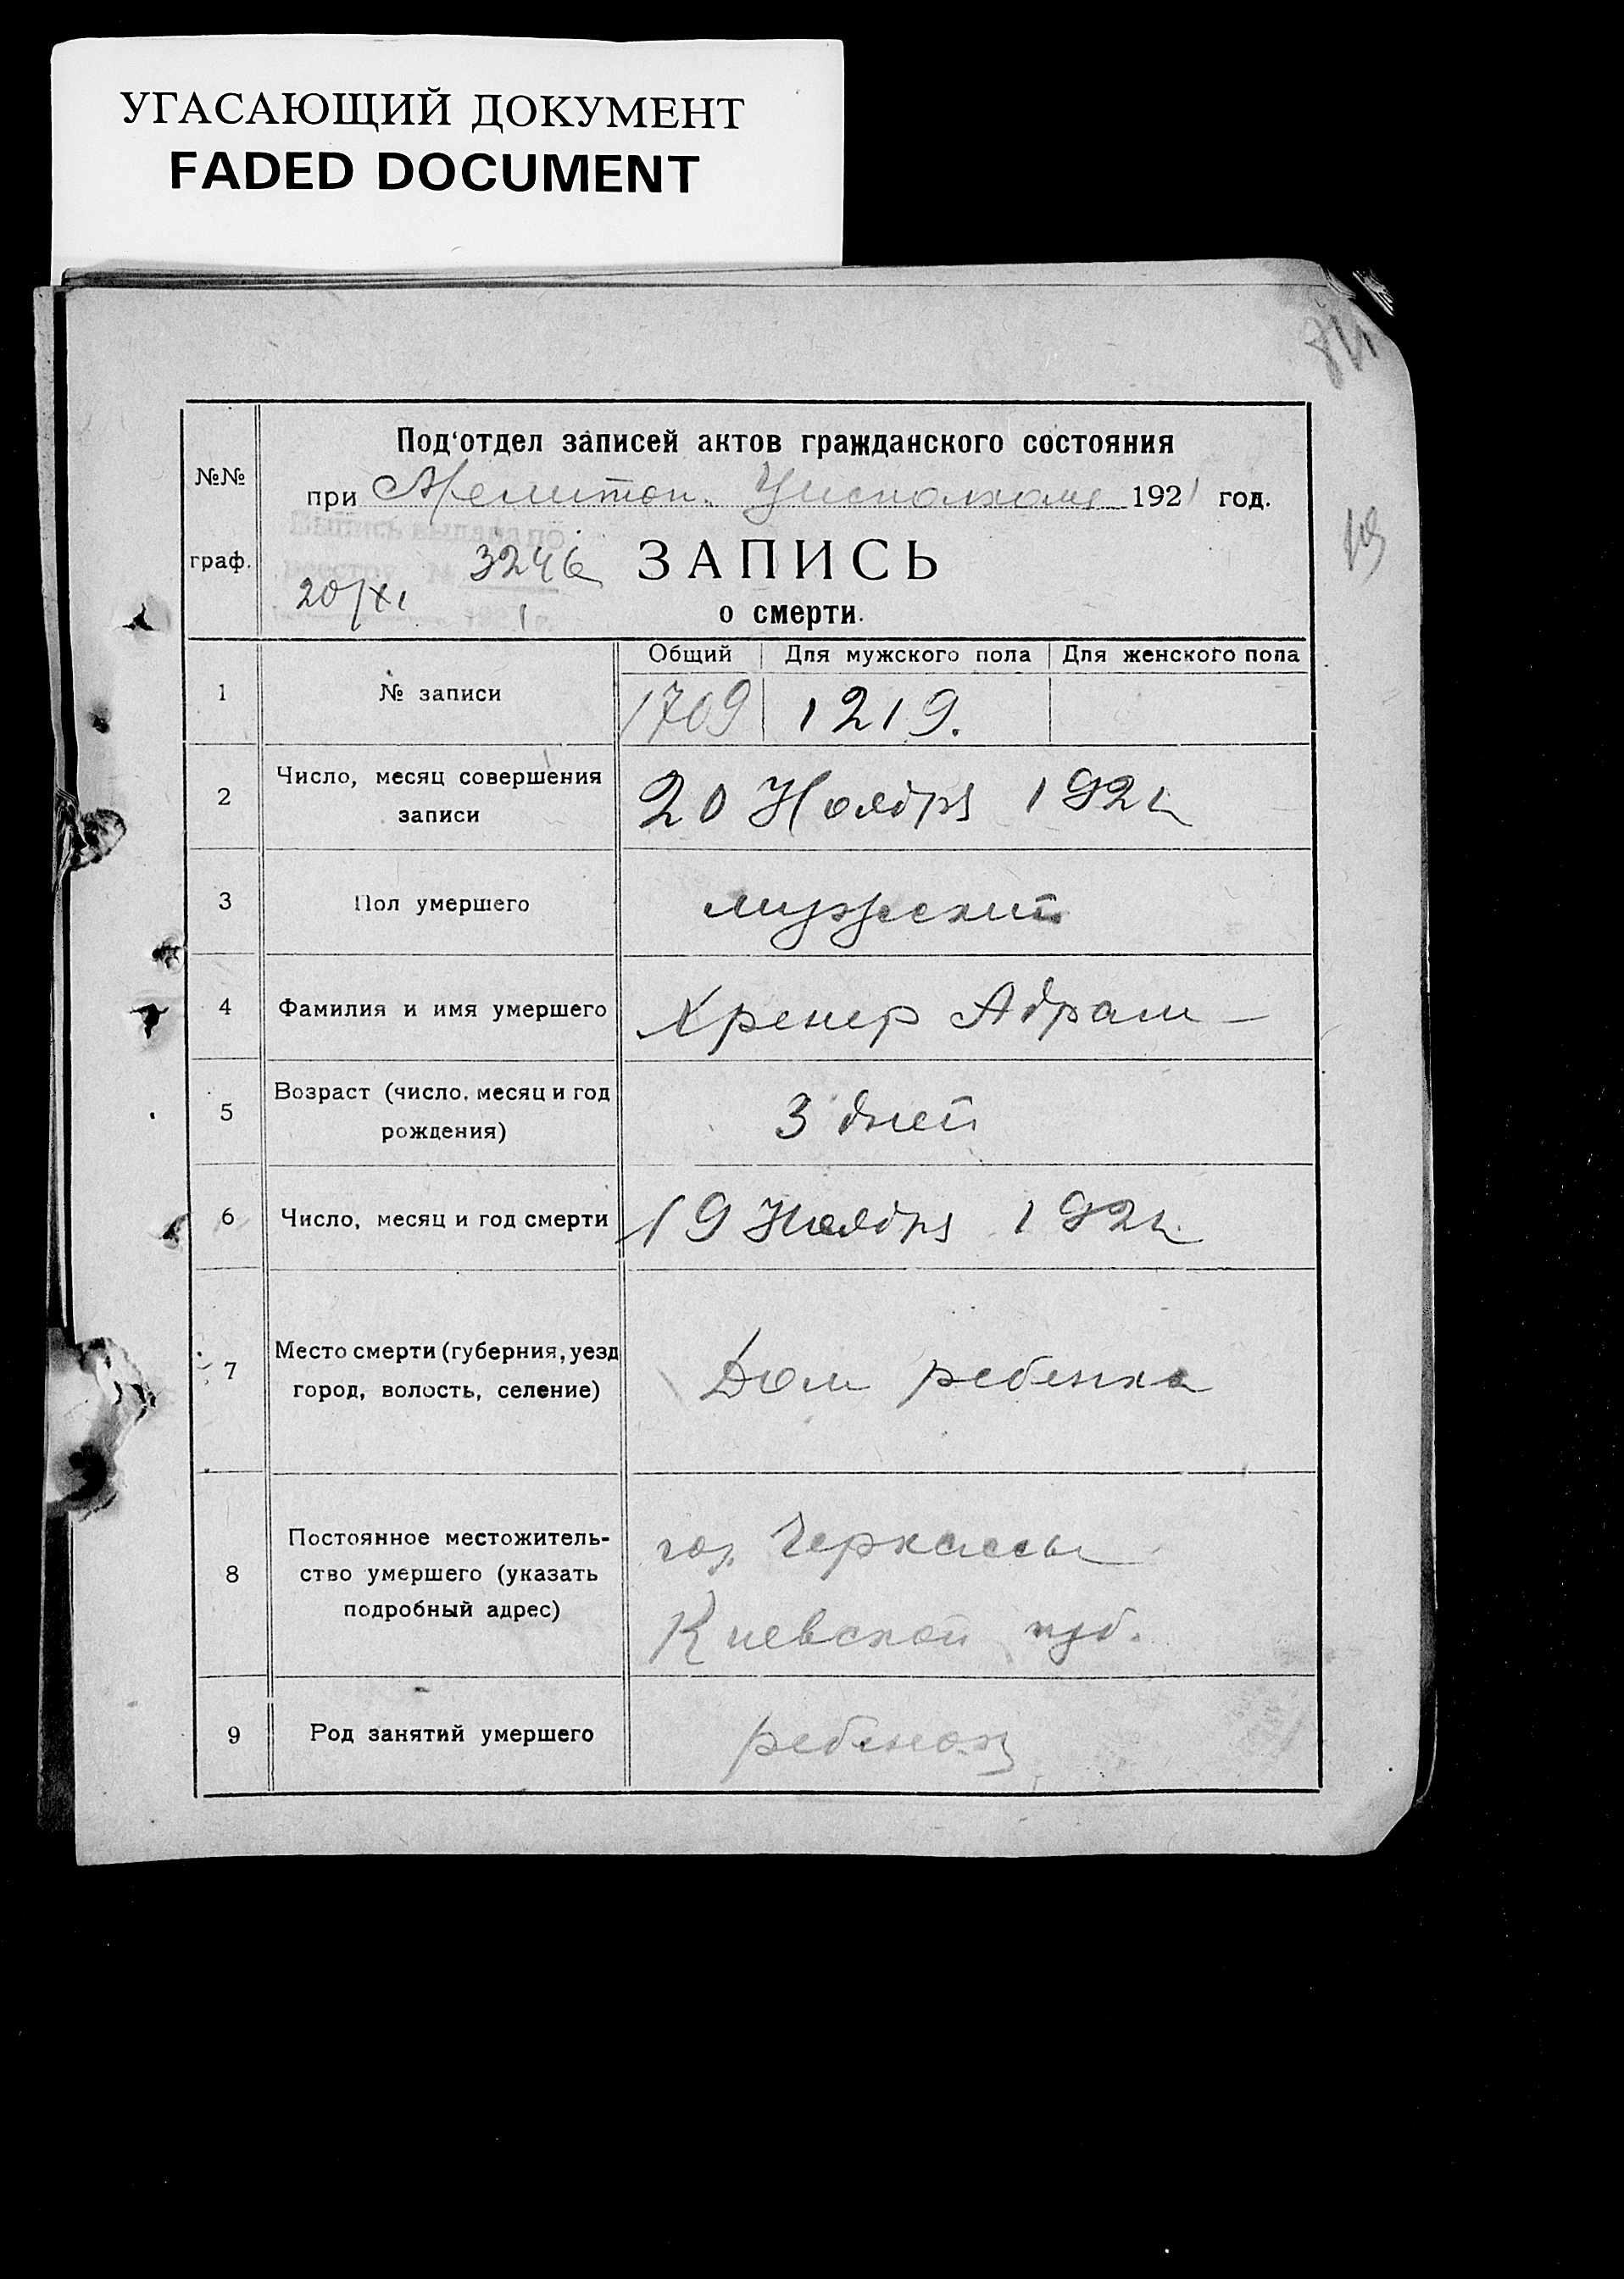 УГАСАЮЩИЙ ДОКУМЕНТ
FADED DOCUMENT
19
№№
граф.
Под‘отдел записей актов гражданского состояния
при Мелитоп. Уисполкоме 1921 год.
Выпись выдана по
реестру № 3246
20/XI 1921 г.
ЗАПИСЬ
о смерти.
Общий Для мужского пола Для женского пола
1 № записи 1709 1219.
2 Число, месяц совершения
записи
20 Ноября 1921 г.
3 Пол умершего мужеский
4 Фамилия и имя умершего Кренер Абрам –
5 Возраст (число, месяц и год
рождения)
3 дней
6 Число, месяц и год смерти 19 Ноября 1921 г.
7 Место смерти (губерния, уезд
город, волость, селение)
Дом ребенка
8 Постоянное местожитель-
ство умершего (указать
подробный адрес)
гор. Черкассы
Киевской губ.
9 Род занятий умершего ребенок